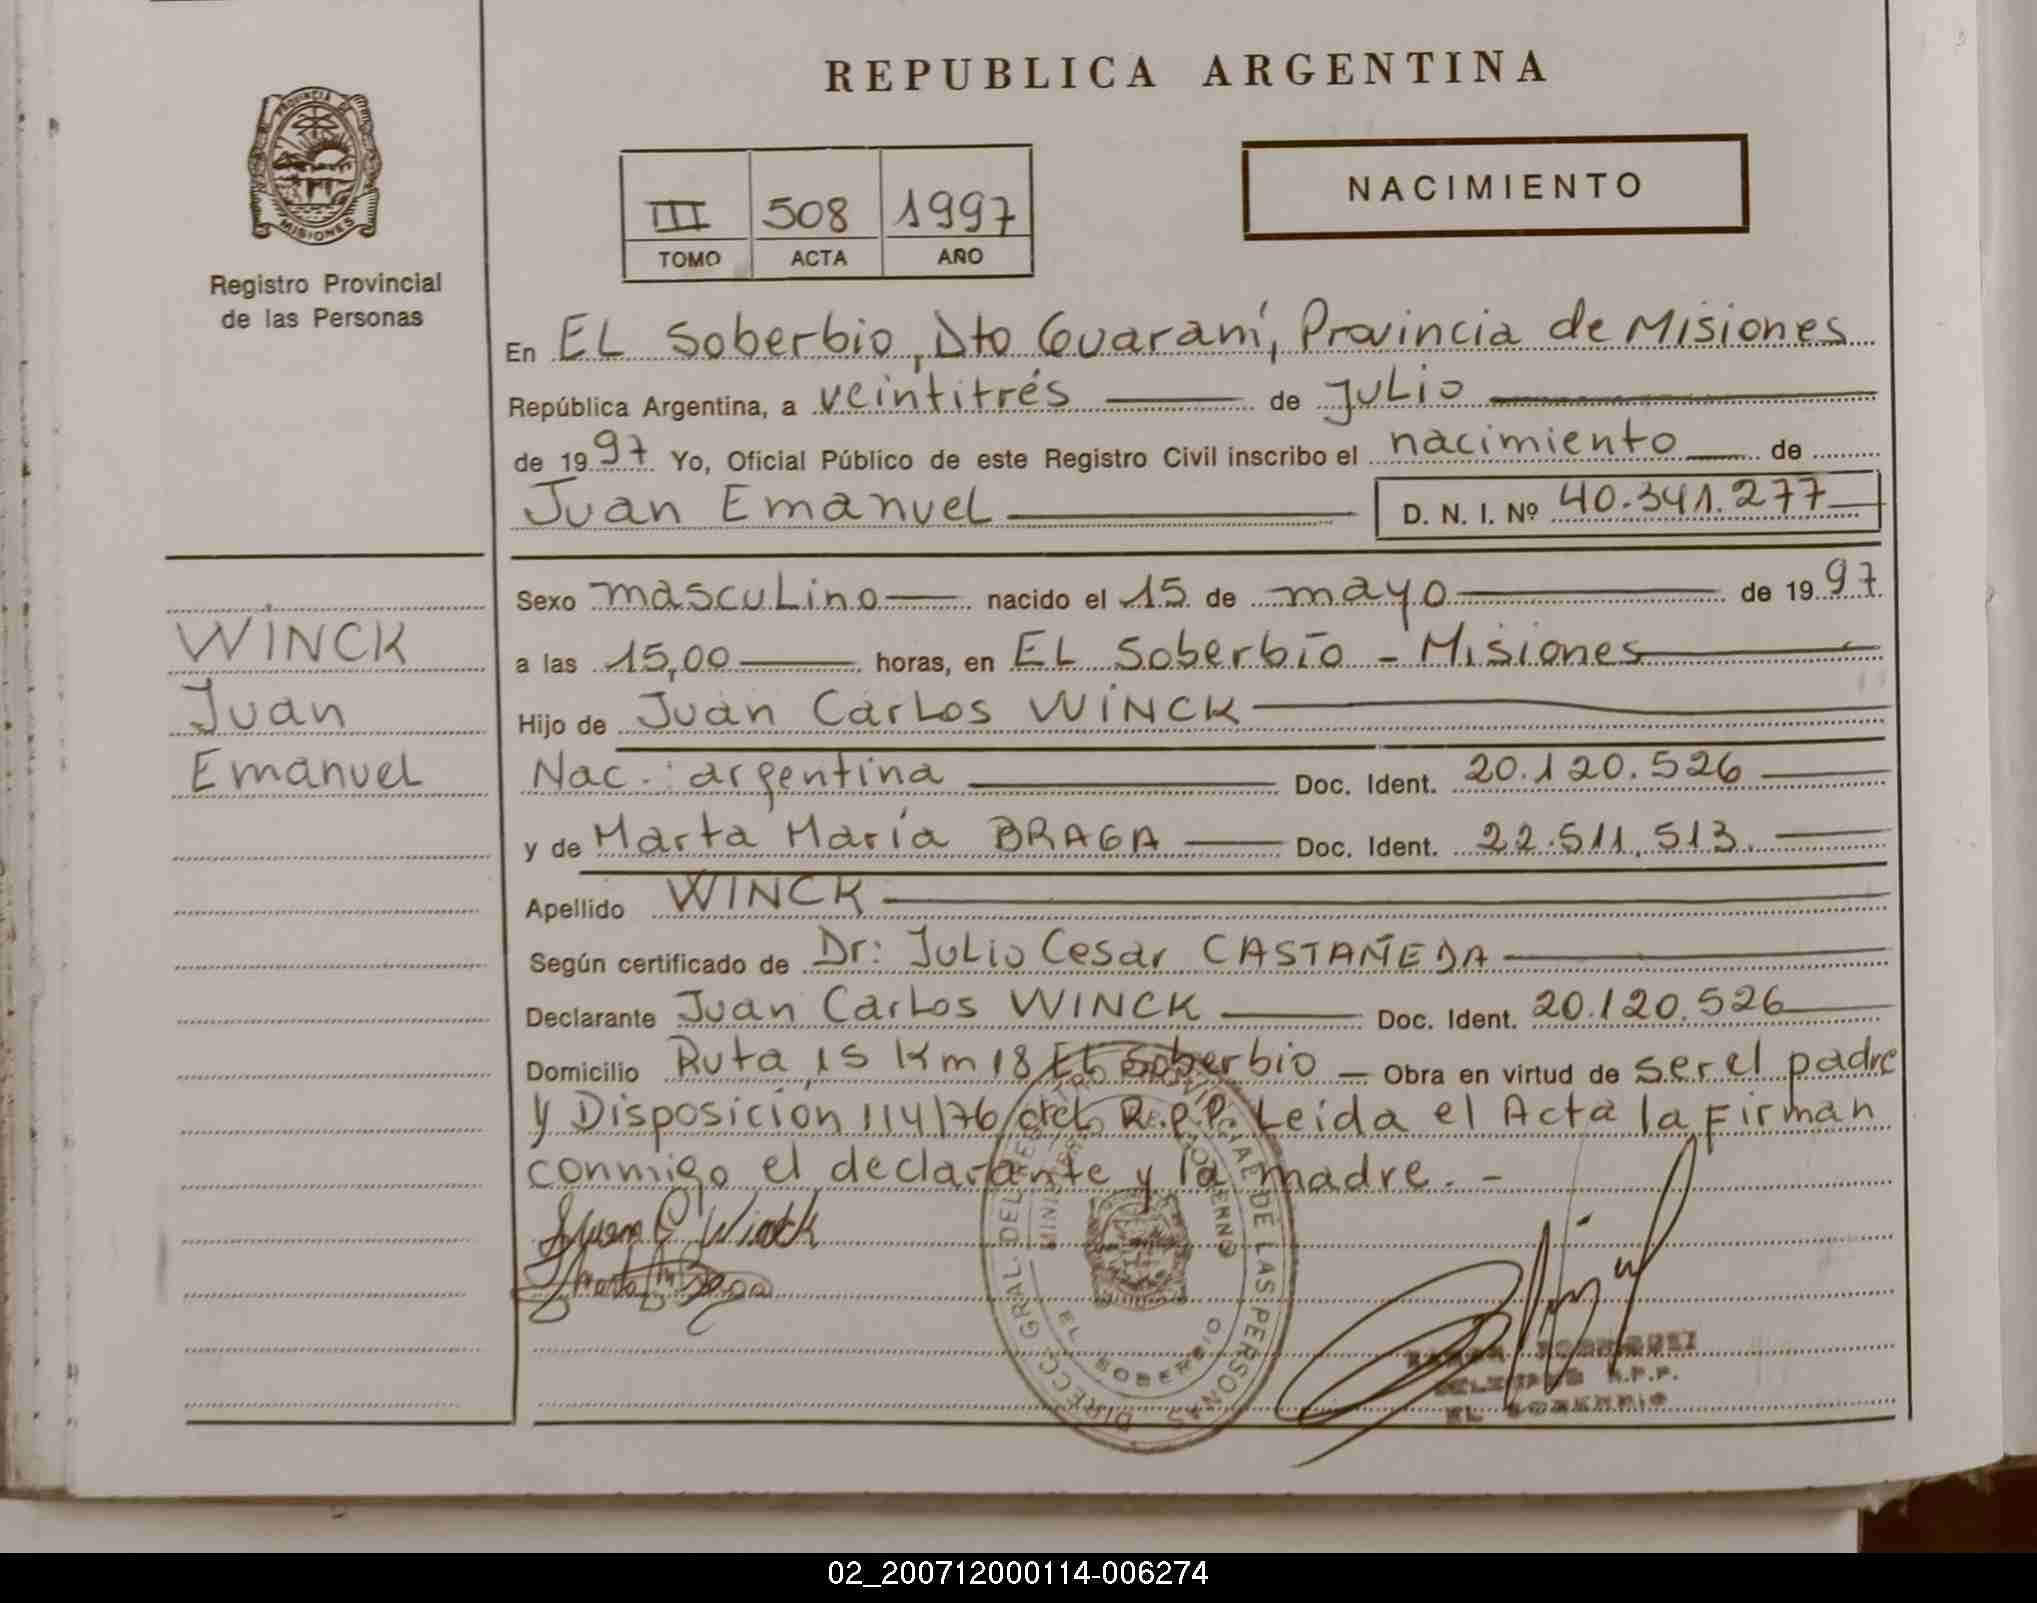 REPUBLICA ARGENTINA
PROVINCIA DE
MISIONES
Registro Provincial
de las Personas
III 508 1997
TOMO ACTA AÑO
NACIMIENTO
En EL Soberbio, Dto Guaraní, Provincia de Misiones
República Argentina, a veintitrés de JULio
de 1997 Yo, Oficial Público de este Registro Civil inscribo el nacimiento de
Juan Emanuel D. N. I. Nº 40.341.277
Sexo mascuLino nacido el 15 de mayo de 1997
a las 15,00 horas, en EL Soberbio - Misiones
Hijo de Juan CarLos WINCK
Nac.: argentina Doc. Ident. 20.120.526
y de Marta María BRAGA Doc. Ident. 22.511.513.
Apellido WINCK
Según certificado de Dr: JuLio Cesar CASTAÑEDA
Declarante Juan CarLos WINCK Doc. Ident. 20.120.526
Domicilio Ruta 15 Km 18 EL Soberbio — Obra en virtud de ser el padre
y Disposición 114/76 del R.P.P. Leída el Acta la Firman
conmigo el declarante y la madre. -
WINCK
Juan
Emanuel
Juan C Winck
Marta M Braga
DIRECC. GRAL. DEL REGISTRO PROVINCIAL DE LAS PERSONAS
EL SOBERBIO
R.P.P.
EL SOBERBIO
02_200712000114-006274